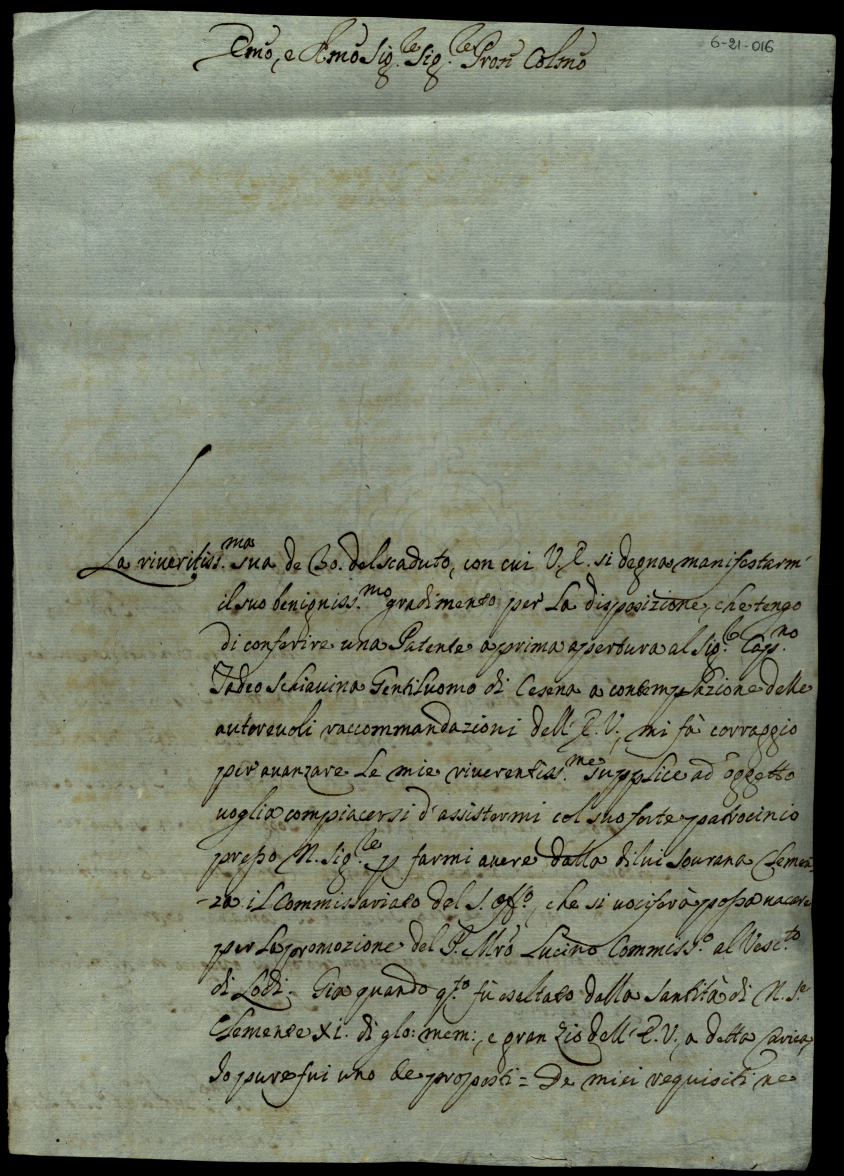 6-21-016
Emo, e Rmo Sig.re Sig.re Pron Colmo
La riveritiss.ma sua de 30. del scaduto, con cui V. E. si degna manifestarmi
il suo benigniss.mo gradimento per la disposizione, che tengo
di conferire una Patente a prima apertura al Sig.re Cap.no
Tadeo Schiavina Gentiluomo di Cesena a contemplazione delle
autorevoli raccommandazioni dell'E. V., mi fà corraggio
per avanzare le mie riverentiss.me supplice ad oggetto
voglia compiacersi d'assistermi col suo forte patrocinio
presso N. Sig.re p farmi avere dalla di lui sovrana Clemen
-za il Commissariato del S. Offo, che si vociferà possa vacare
per la promozione del P. Mro Lucino Commiss.o al Vesc.to
di Lodi. Gia quando q.to fù esaltato dalla Santità di N. S.re
Clemente XI. di glo: mem:, e gran Zio dell'E. V., a detta Carica,
Io pure fui uno de proposti = De miei requisiti ne